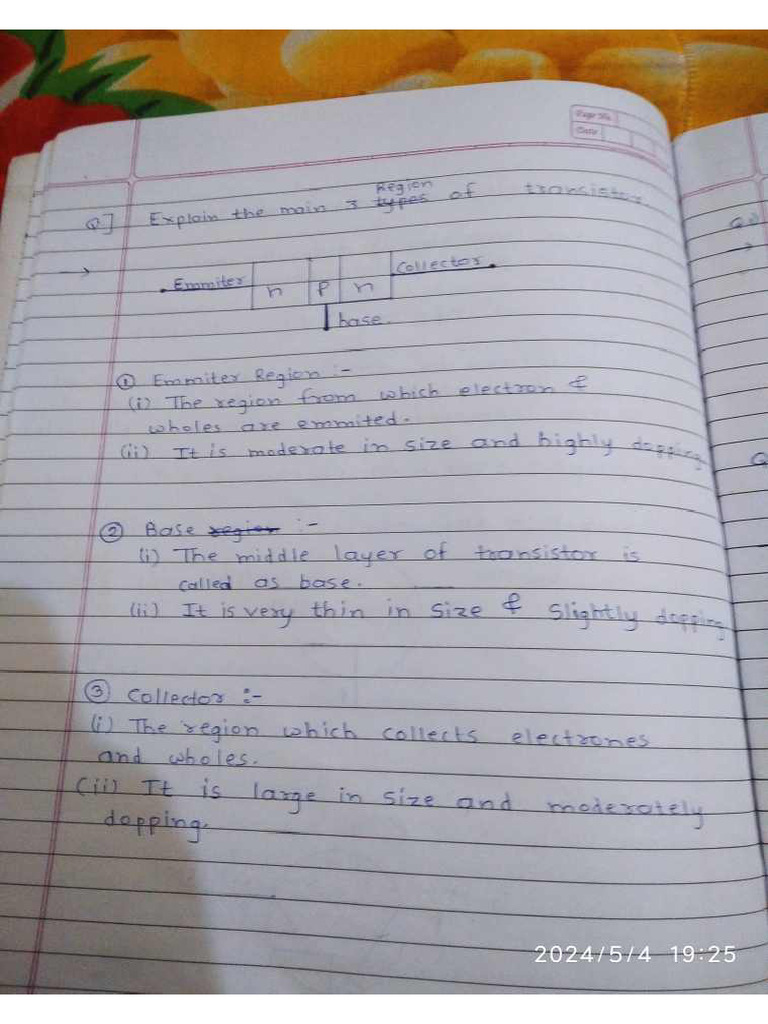 Page No.
Date
Region
Q] Explain the main 3 types of transistor
→
Emmiter n p n Collector.
base.
① Emmiter Region :-
(i) The region from which electron &
wholes are emmited.
(ii) It is moderate in size and highly dopping
② Base region :-
(i) The middle layer of transistor is
called as base.
(ii) It is very thin in size & slightly dopping
③ Collector :-
(i) The region which collects electrones
and wholes.
(ii) It is large in size and moderately
dopping.
2024/5/4 19:25